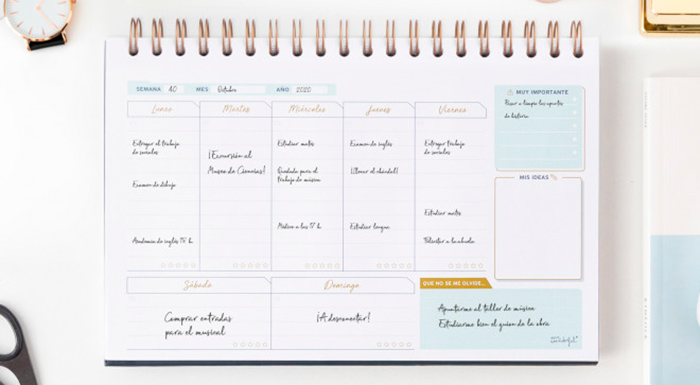 SEMANA 40 MES Octubre AÑO 2020
Lunes
Entregar el trabajo
de sociales
Examen de dibujo
Academia de inglés 17 h.
Martes
¡Excursión al
Museo de Ciencias!
Miércoles
Estudiar mates
Quedada para el
trabajo de música
Médico a las 17 h.
Jueves
Examen de inglés
¡Llevar el chándal!
Estudiar lengua
Viernes
Entregar trabajo
de sociales
Estudiar mates
Telefonear a la abuela
MUY IMPORTANTE
Pasar a limpio los apuntes
de historia
MIS IDEAS
Sábado
Comprar entradas
para el musical
Domingo
¡A desconectar!
QUE NO SE ME OLVIDE...
Apuntarme al taller de música
Estudiarme bien el guion de la obra
wonderful